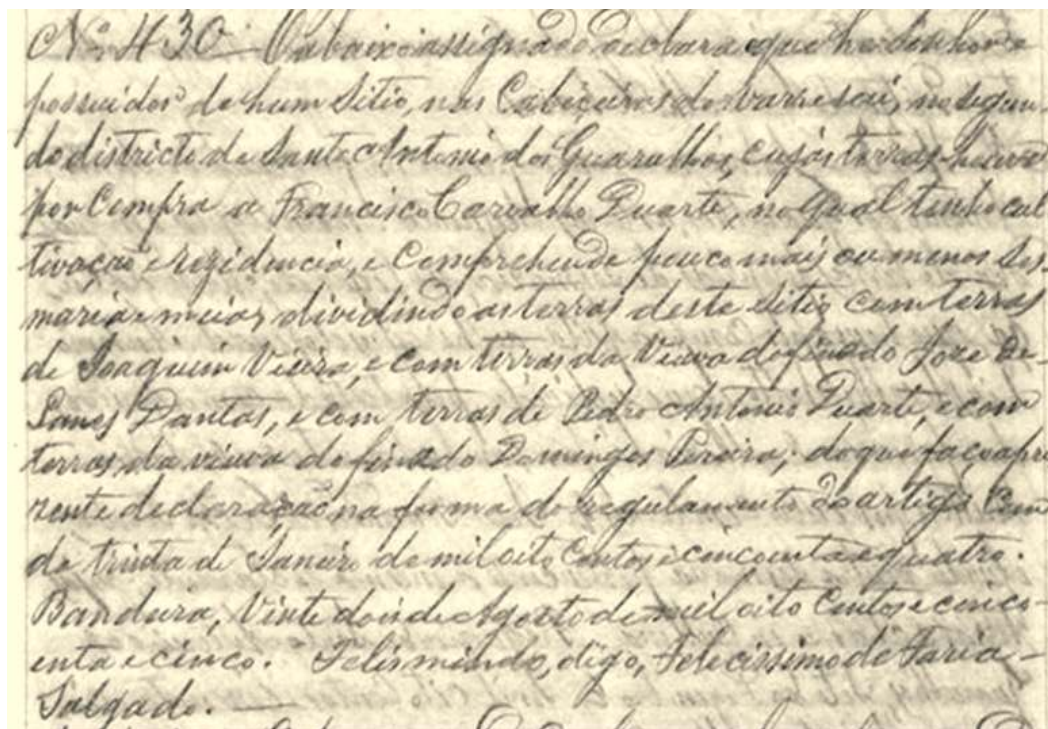 Nº 430 – O abaixo assignado declara que he Senhor e
possuidor de hum Sitio, nas Cabiçeiras do varre sai, no segun-
do districto de Santo Antonio dos Guarulhos, cujas terras houve
por Compra a Francisco Carvalho Duarte, no qual tenho cul
tivação e rezidencia, e Comprehende pouco mais ou menos Ses-
maria e meia, dividindo as terras deste Sitio com terras
de Joaquim Vieira, e com terras da Viuva do finado Joze de
Dantas, e com terras de Pedro Antonio Duarte, e com
terras da viuva do finado Domingos Pereira; do que faço apre
zente declaração na forma do regulamento do artigo Cem
de trinta de Janeiro de mil oito Centos e cincoenta e quatro.
Bandeira, Vinte dois de Agosto de mil oito Centos e cinco-
enta e cinco. Felismindo, digo, Felecissimo de Faria –
Salgado. –